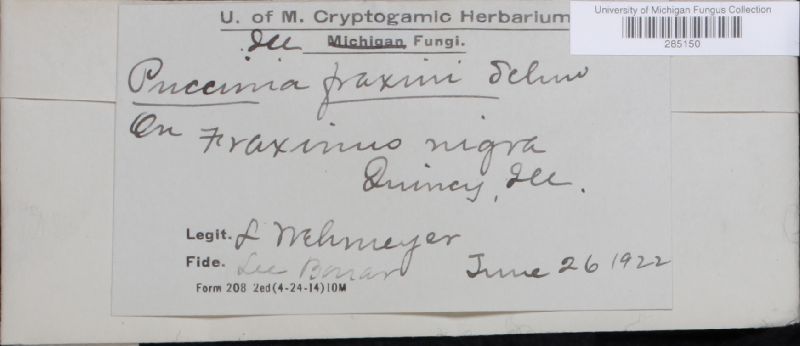 U. of M. Cryptogamic Herbarium
University of Michigan Fungus Collection
265150
Ill Michigan Fungi.
Puccinia fraxini Schw
On Fraxinus nigra
Quincy, Ill.
Legit. L Wehmeyer
Fide. Lee Bonar June 26 1922
Form 208 2ed(4-24-14)10M